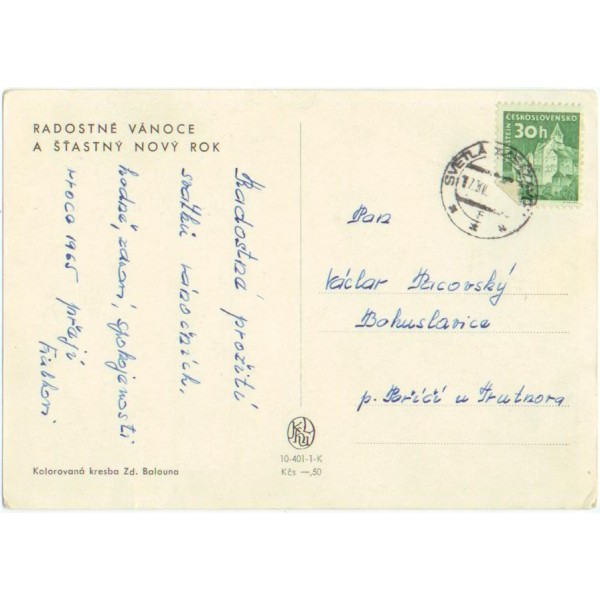 RADOSTNÉ VÁNOCE
A ŠŤASTNÝ NOVÝ ROK
Radostná prožití
svátků vánočních,
hodně zdraví, spokojenosti
v roce 1965 přejí
Kolorovaná kresba Zd. Balouna
10-401-1-K
Kčs —,50
ČESKOSLOVENSKO
30h
SVĚTLÁ
Pan
Václav
Bohuslavice
p. Poříčí u Trutnova